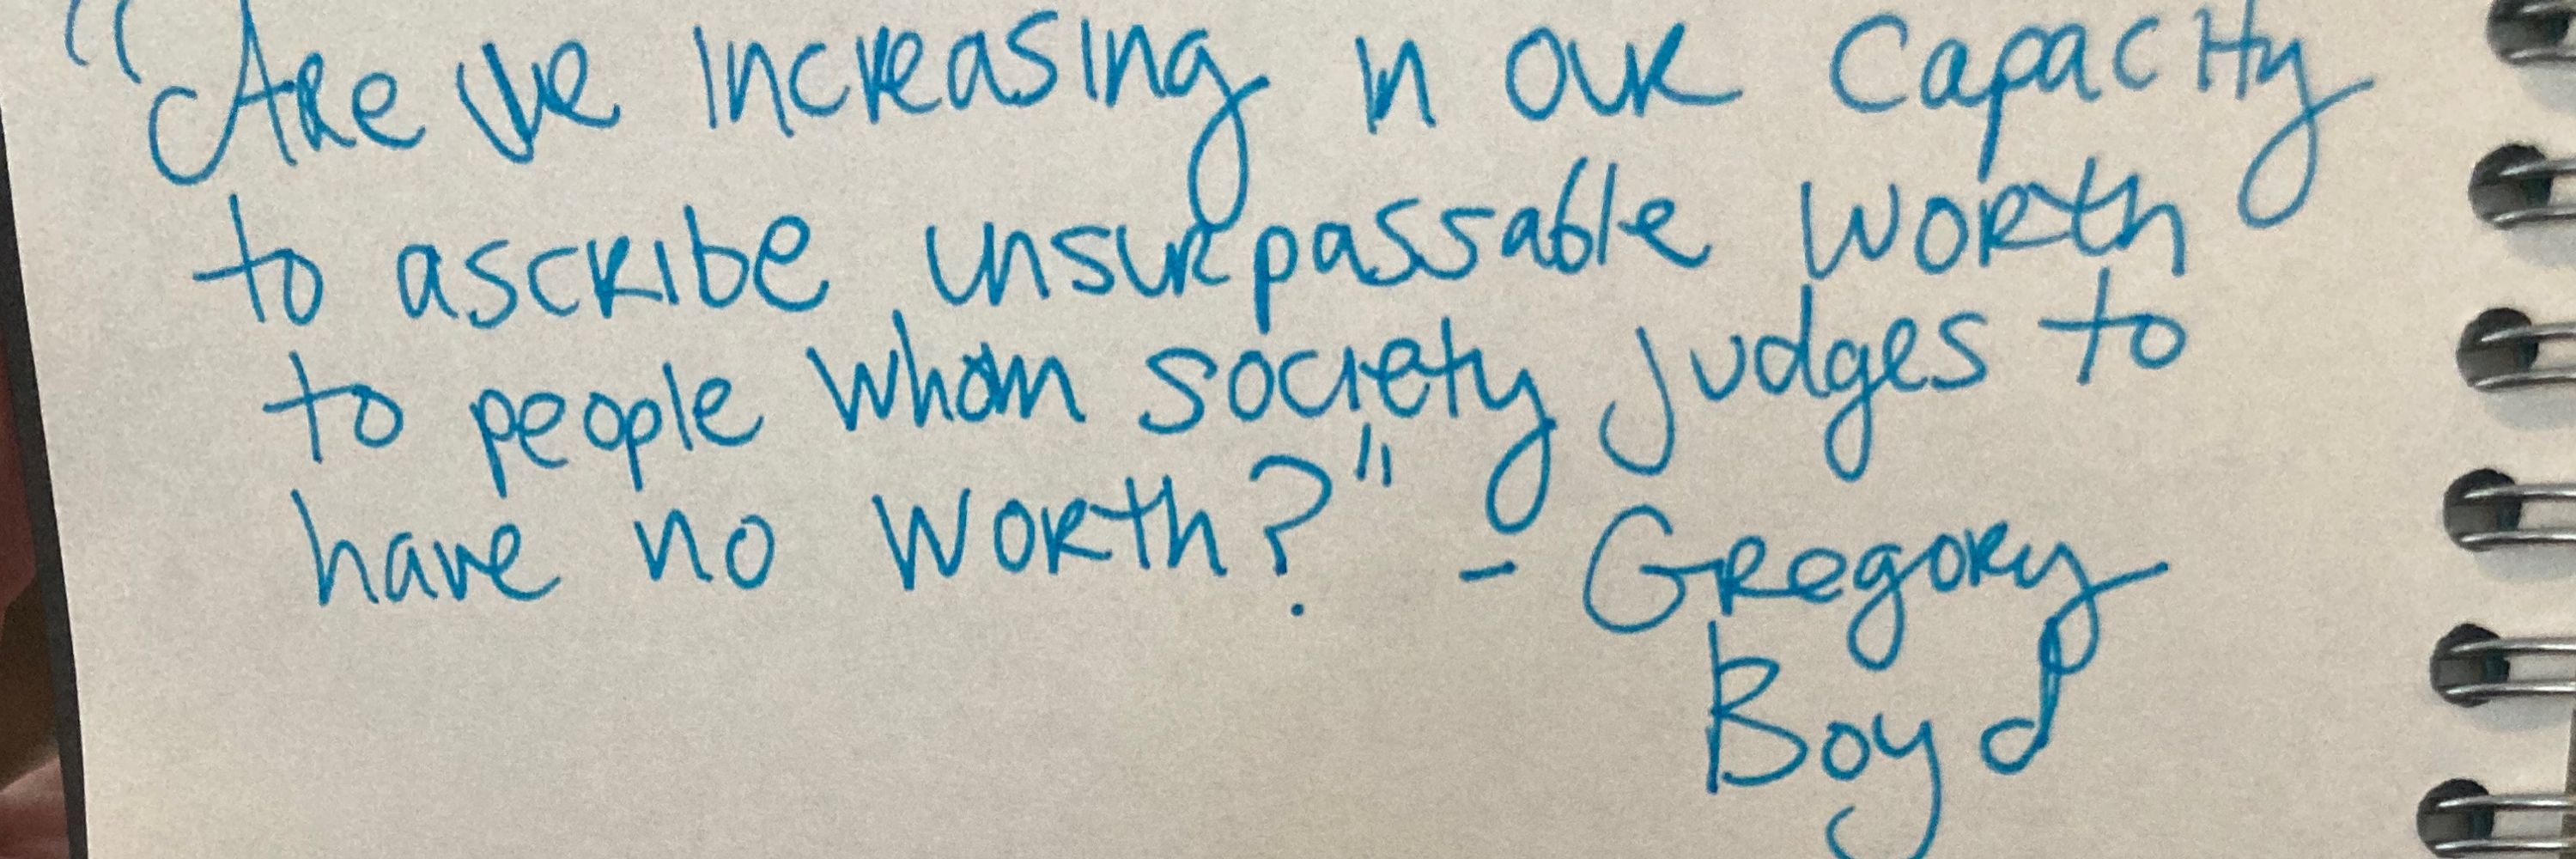 "Are we increasing in our capacity
to ascribe unsurpassable worth
to people whom society judges to
have no worth?" - Gregory
Boyd